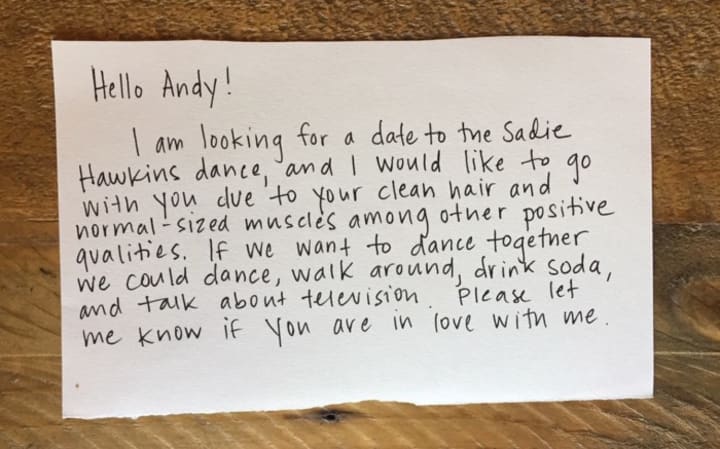 Hello Andy!
I am looking for a date to the Sadie
Hawkins dance, and I would like to go
with you due to your clean hair and
normal-sized muscles among other positive
qualities. If we want to dance together
we could dance, walk around, drink soda,
and talk about television. Please let
me know if you are in love with me.